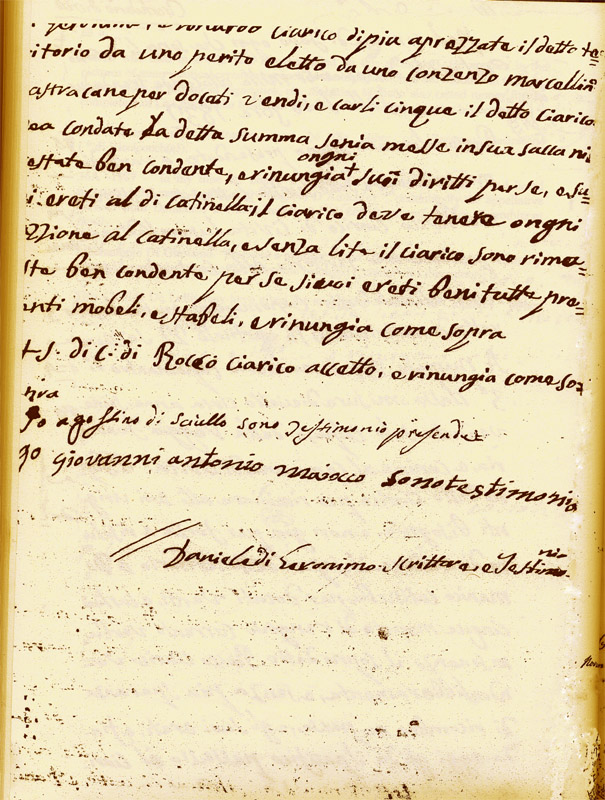 Ciarico di più aprezzate il detto te=
itorio da uno perito eletto da uno conzenzo marcellino
astracane per docati vendi, e carli cinque il detto Ciarico
condate La detta summa senia messe in sua salla
estate ben condente, e rinungia ongni suoi diritti per se, e su=
ereti al di Catinella, il Ciarico deve tenere ongni
zzione al Catinella, e senza lite il Ciarico sono rima=
ste ben condente per se sievoi ereti beni tutte pre=
enti mobeli, e stabeli, e rinungia come sopra
di C. di Rocco Ciarico accetto, e rinungia come so=
pra
Io agostino di Sciullo sono Testimonio presende
Io Giovanni antonio maiocco Sono testimonio
Daniele di Geronimo Scrittore, e Testimonio